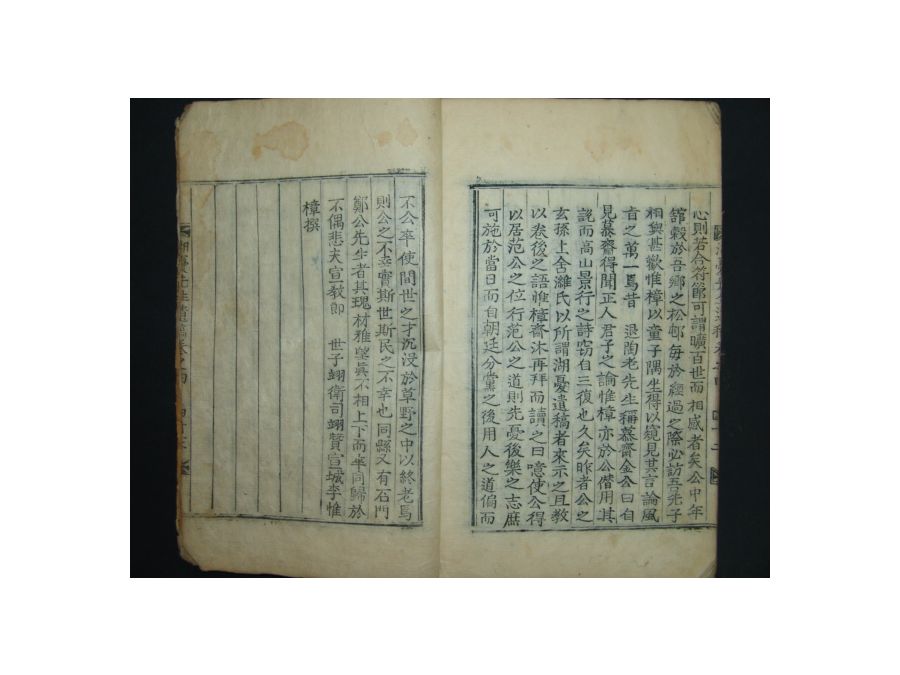 心則若合符節可謂曠百世而相感者矣公中年
舘穀於吾鄕之松邨每於經過之際必訪吾先子
相與甚歡惟樟以童子隅坐得以窺見其言論風
旨之萬一焉昔 退陶老先生稱慕齋金公曰自
見慕齋得聞正人君子之論惟樟亦於公僭用其
說而高山景行之詩窃自三復也久矣昨者公之
玄孫上舍濰氏以所謂湖憂遺稿者來示之且敎
以卷後之語惟樟齋沐再拜而讀之曰噫使公得
以居范公之位行范公之道則先憂後樂之志庶
可施於當日而自朝廷分黨之後用人之道偏而
不公卒使間世之才沉没於草野之中以終老焉
則公之不幸實斯世斯民之不幸也同縣又有石門
鄭公先生者其瑰材雅望眞不相上下而卒同歸於
不偶悲夫宣敎郎 世子翊衛司翊贊宣城李惟
樟撰